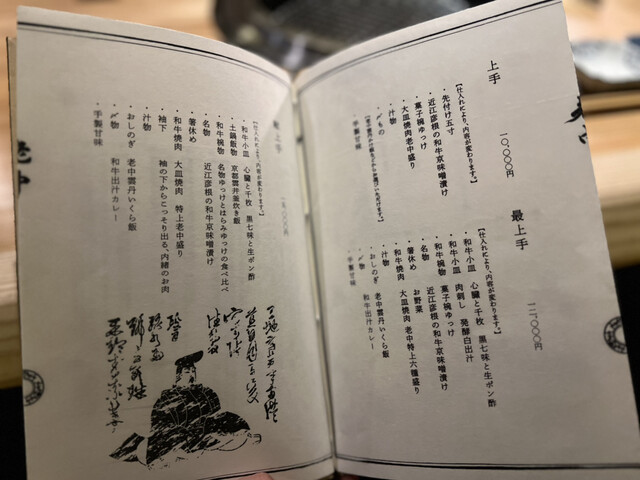 上手
一〇、〇〇〇円
【仕入れにより、内容が変わります。】
・先付け五寸
・近江彦根の和牛京味噌漬け
・菓子椀ゆっけ
・大皿焼肉老中盛り
・汁物
・〆もの
・手製甘味
最上手
一二、〇〇〇円
【仕入れにより、内容が変わります。】
・和牛小皿 心臓と千枚 黒七味と生ポン酢
・和牛小皿 肉刺し 発酵白出汁
・和牛椀物 菓子椀ゆっけ
・名物 近江彦根の和牛京味噌漬け
・箸休め お野菜
・和牛焼肉 大皿焼肉 老中特上六種盛り
・汁物
・おしのぎ 老中雲丹いくら飯
・〆物 和牛出汁カレー
・手製甘味
上手
【仕入れにより、内容が変わります。】
・和牛小皿 心臓と千枚 黒七味と生ポン酢
・土鍋飯物 京都雲井釜炊き飯
・和牛椀物 名物ゆっけとはらみゆっけの食べ比べ
・名物 近江彦根の和牛京味噌漬け
・箸休め
・和牛焼肉 大皿焼肉 特上老中盛り
・袖下 袖の下からこっそり出る、内緒のお肉
・汁物
・おしのぎ 老中雲丹いくら飯
・〆物 和牛出汁カレー
・手製甘味
老中